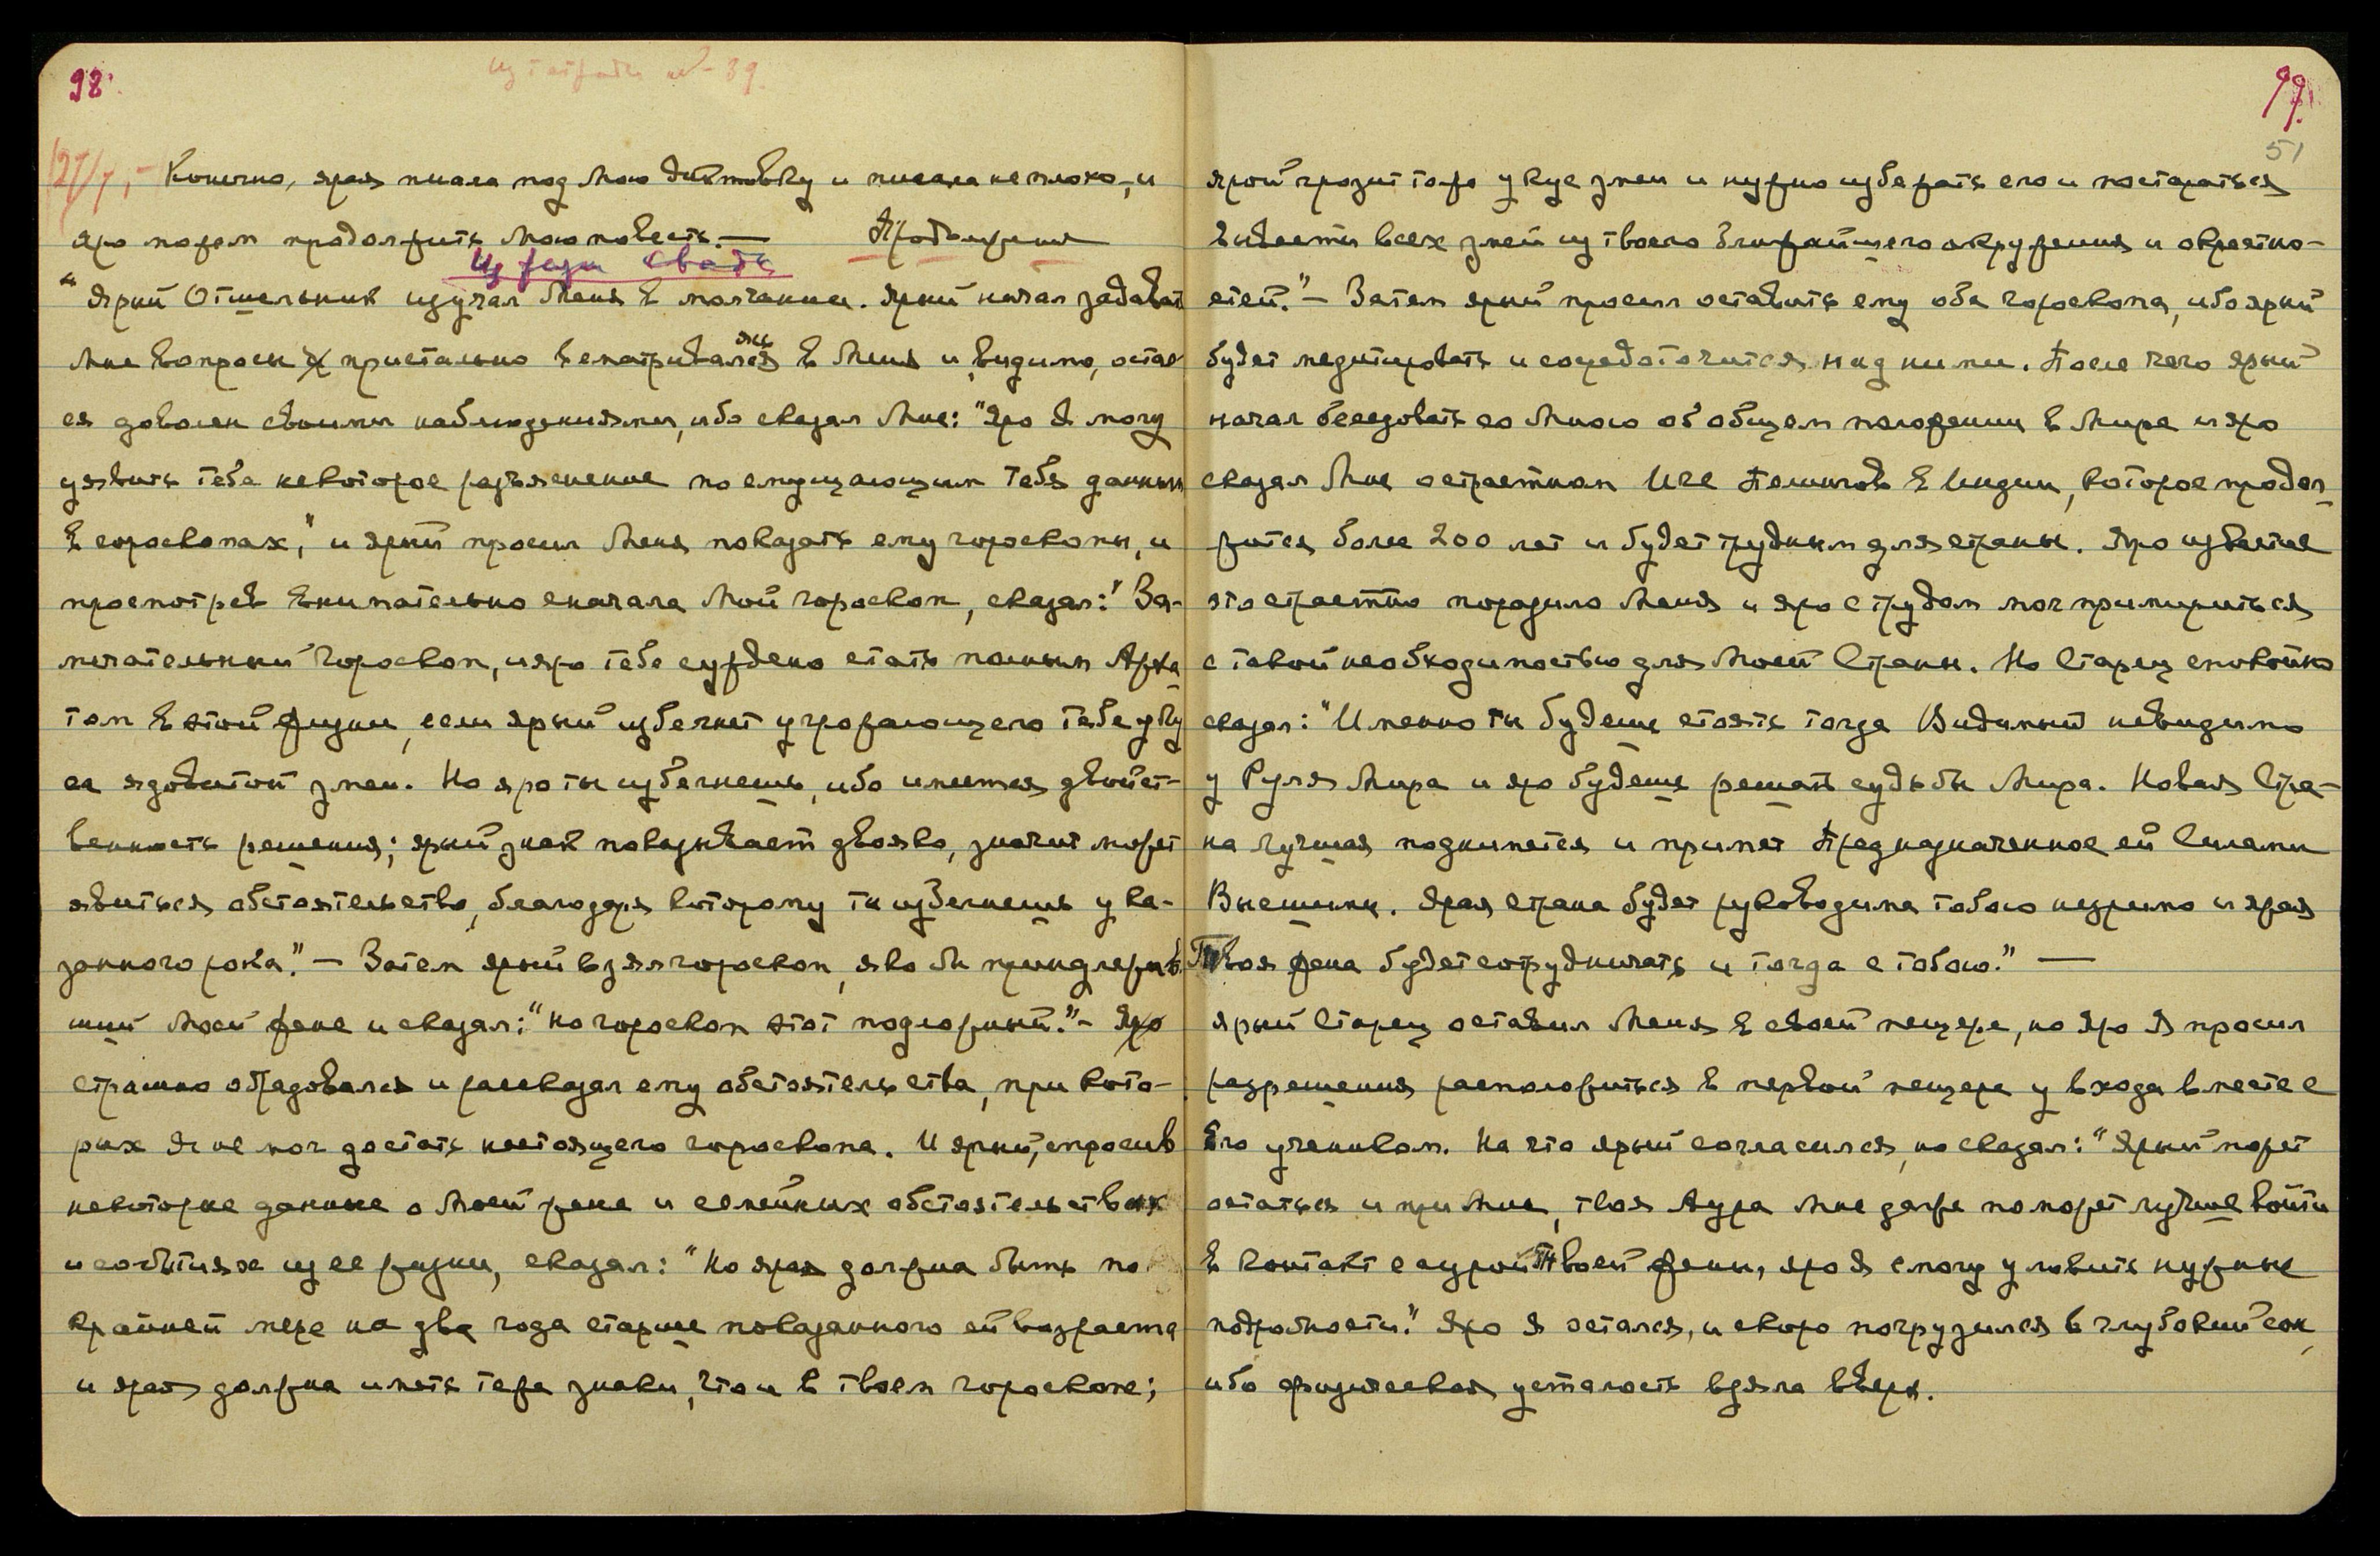 98.
из тетради № 39
27/7, – Конечно, ярая писала под Мою диктовку и писала не плохо, и
яро можем продолжить Мою повесть. — Продолжение
Из жизни
"Ярый Отшельник изучал Меня в молчании. Ярый начал задавать
Мне вопросы и пристально всматривался в Меня и, видимо, остал
ся доволен своими наблюдениями, ибо сказал Мне: "Яро Я могу
уявить тебе некоторое разъяснение по смущающим тебя данным
в гороскопах," и ярый просил Меня показать ему гороскопы, и
просмотрев внимательно сначала Мой гороскоп, сказал: "За-
мечательный гороскоп, и яро тебе суждено стать полным Арха
том в этой жизни, если ярый избегнет угрожающего тебе уку
са ядовитой змеи. Но яро ты избегнешь, ибо имеется двойст-
венность решения; ярый знак показывает двояко, значит может
явиться обстоятельство, благодаря которому ты избегнешь ука-
занного рока." – Затем ярый взял гороскоп, яко бы принадлежав
ший Моей жене и сказал: "Но гороскоп этот подложный." – Яро
страшно обрадовался и рассказал ему обстоятельства, при кото-
рых Я не мог достать настоящего гороскопа. И ярый, спросив
некоторые данные о Моей жене и семейных обстоятельствах
и событиях из ее жизни, сказал: "Но ярая должна быть по
крайней мере на два года старше показанного ей возраста
и ярая должна иметь те же знаки, что и в твоем гороскопе;
99.
51
ярой грозит то же укус змеи и нужно уберать его и постараться
вывести всех змей из твоего ближайшего окружения и окрестно-
стей." – Затем ярый просил оставить ему оба гороскопа, ибо ярый
будет медитировать и сосредоточится над ними. После чего ярый
начал беседовать со Мною об общем положении в Мире и яро
сказал Мне о страстном Иге Пелингов в Индии, которое продол-
жится более 200 лет и будет трудным для страны. Яро известие
это страстно поразило Меня и яро с трудом мог примириться
с такой необходимостью для Моей Страны. Но Старец спокойно
сказал: "Именно ты будешь стоять тогда Видимый невидимо
у Руля Мира и яро будешь решать судьбы Мира. Новая Стра-
на лучшая поднимется и примет Предназначенное ей Силами
Высшими. Ярая страна будет руководима тобою незримо и ярая
Твоя жена будет сотрудничать и тогда с тобою." —
Ярый Старец оставил Меня в своей пещере, но яро Я просил
разрешения расположиться в первой пещере у входа вместе с
Его учеником. На что ярый согласился, но сказал: "Ярый может
остаться и при Мне, твоя Аура Мне даже поможет лучше войти
в контакт с аурой Твоей жены, яро Я смогу уловить нужные
подробности." Яро Я остался, и скоро погрузился в глубокий сон,
ибо физическая усталость взяла вверх.